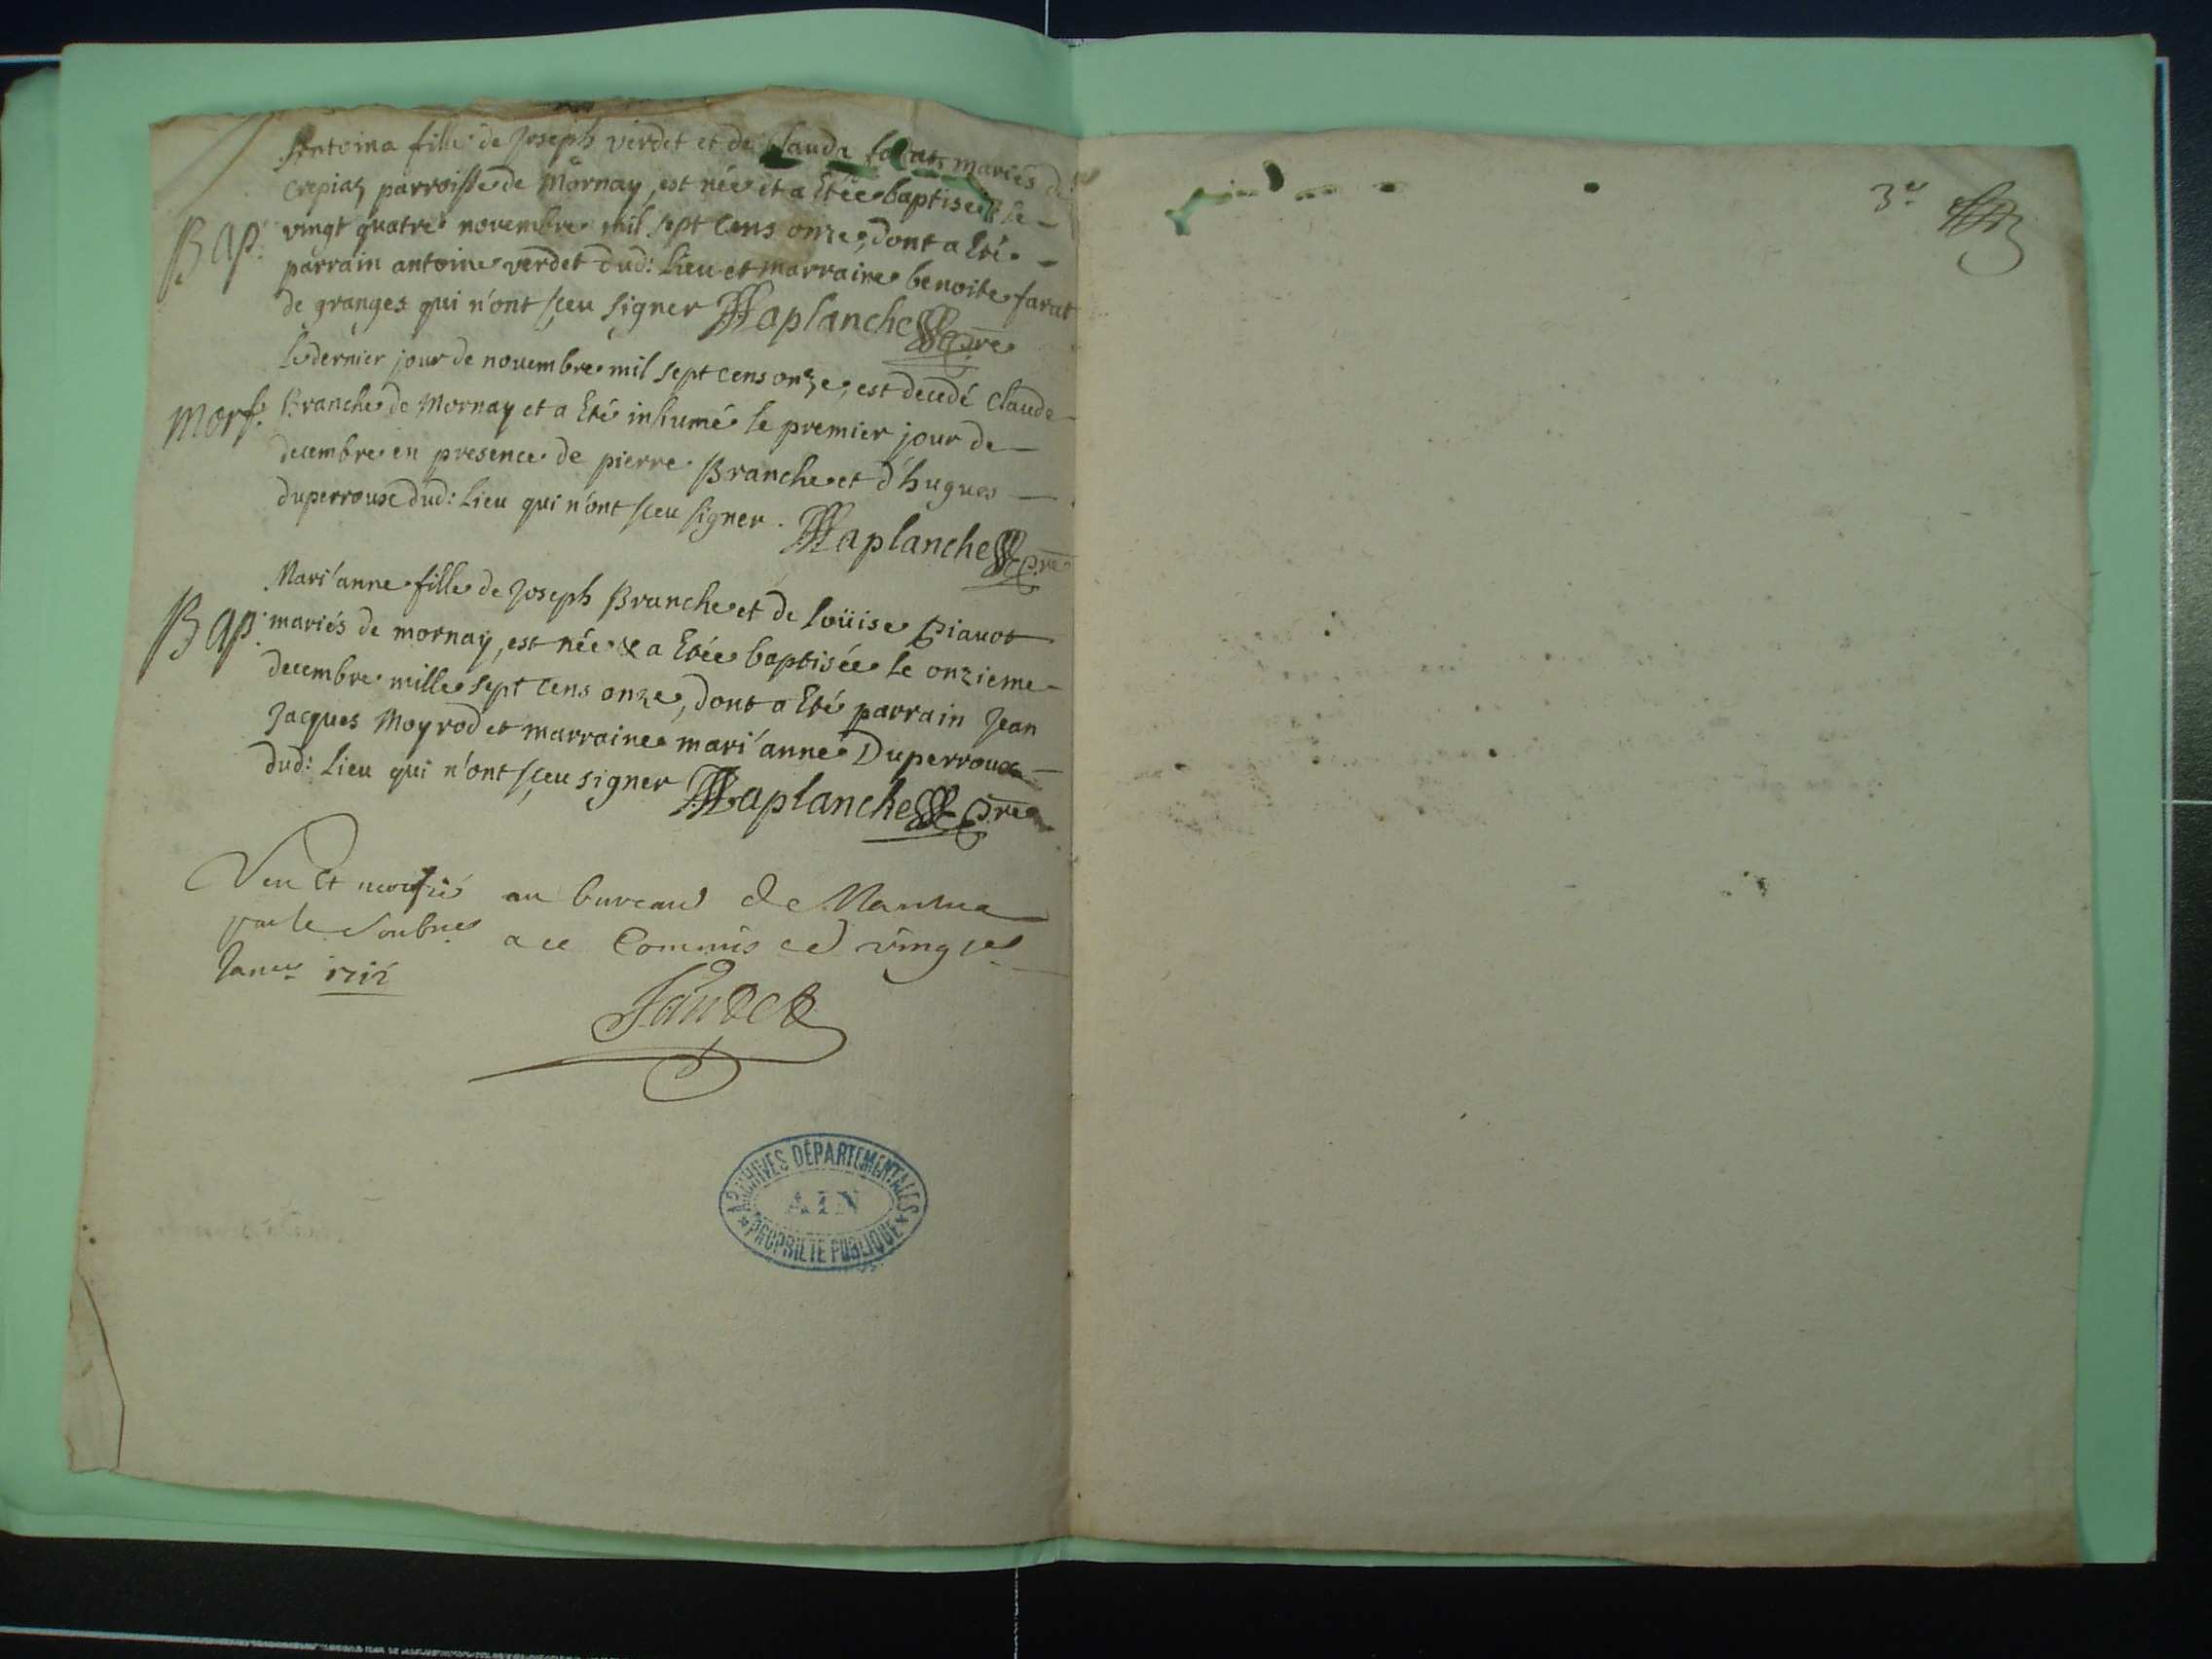 Antoina fille de Joseph verdet et de Clauda farat mariés de
crepiaz parroisse de Mornay, est née et a Etée baptisée le
Bap: vingt quatre novembre mil sept cens onze, dont a Eté
parrain antoine verdet dud: lieu et marraine benoite farat
de granges qui n'ont sçeu signer Laplanche pre
le dernier jour de novembre mil sept cens onze, est decedé Claude
Mort. Branche de Mornay et a Eté inhumé le premier jour de
decembre en presence de pierre Branche et d'hugues
duperroux dud: lieu qui n'ont sceu signer. Laplanche pre
Mari'anne fille de Joseph Branche et de loüise piavot
Bap: mariés de mornay, est née & a Etée baptisée le onzieme
decembre mille sept cens onze, dont a Eté parrain Jean
Jacques Moyrod et marraine mari'anne Duperroux
dud: lieu qui n'ont sçeu signer Laplanche pre
Veu Et au bureau de Nantua
par le Soubné a ce Commis ce vingt
Janer
ARCHIVES DÉPARTEMENTALES
AIN
* PROPRIÉTÉ PUBLIQUE *
3e